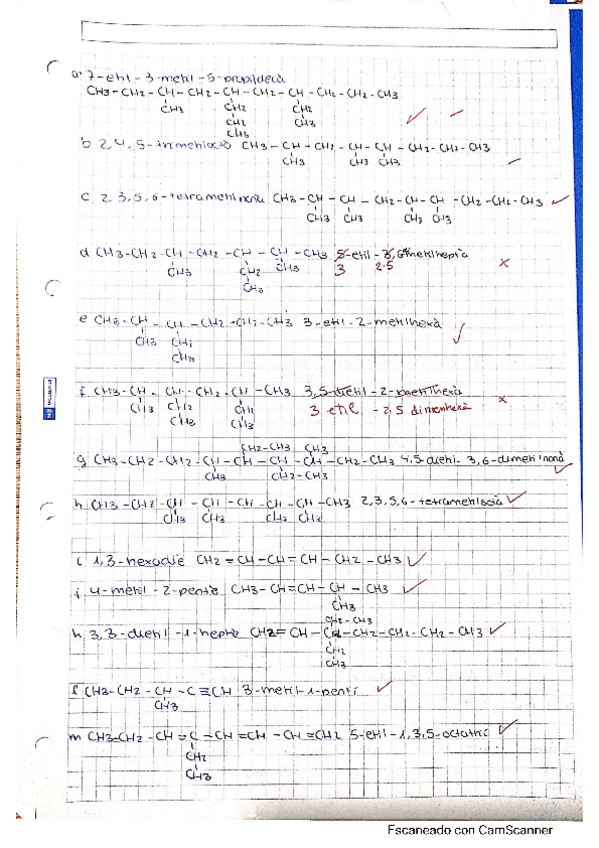 a. 7-etil-3-metil-5-propildecà
CH3-CH2-CH-CH2-CH-CH2-CH-CH2-CH2-CH3
CH3 CH2 CH2
CH2 CH3
CH3
b 2,4,5-trimetiloctà CH3-CH-CH2-CH-CH-CH2-CH2-CH3
CH3 CH3 CH3
c 2,3,5,6-tetrametilnonà CH3-CH-CH-CH2-CH-CH-CH2-CH2-CH3
CH3 CH3 CH3 CH3
d CH3-CH2-CH-CH2-CH-CH-CH3 5-etil-3,6 metilheptà
CH3 CH2 CH3 3 2.5
CH3
e CH3-CH-CH-CH2-CH2-CH3 3-etil-2-metilhexà
CH3 CH2
CH3
f CH3-CH-CH-CH2-CH-CH3 3,5-dietil-2-metilhexà
CH3 CH2 CH2 3 etil -2,5 dimenhexà
CH3 CH3
CH2-CH3 CH3
g CH3-CH2-CH2-CH-CH-CH-CH-CH2-CH3 4,5-dietil-3,6-dimetilnonà
CH3 CH2-CH3
h CH3-CH2-CH-CH-CH-CH-CH-CH3 2,3,5,6-tetrametiloctà
CH3 CH3 CH3 CH3
i 1,3-hexadiè CH2=CH-CH=CH-CH2-CH3
j 4-metil-2-pentè CH3-CH=CH-CH-CH3
CH3
CH2-CH3
k 3,3-dietil-1-heptè CH2=CH-CH-CH2-CH2-CH2-CH3
CH2
CH3
l CH3-CH2-CH-C≡CH 3-metil-1-pentí
CH3
m CH3-CH2-CH=C-CH=CH-CH=CH2 5-etil-1,3,5-octatri
CH2
CH3
Escaneado con CamScanner